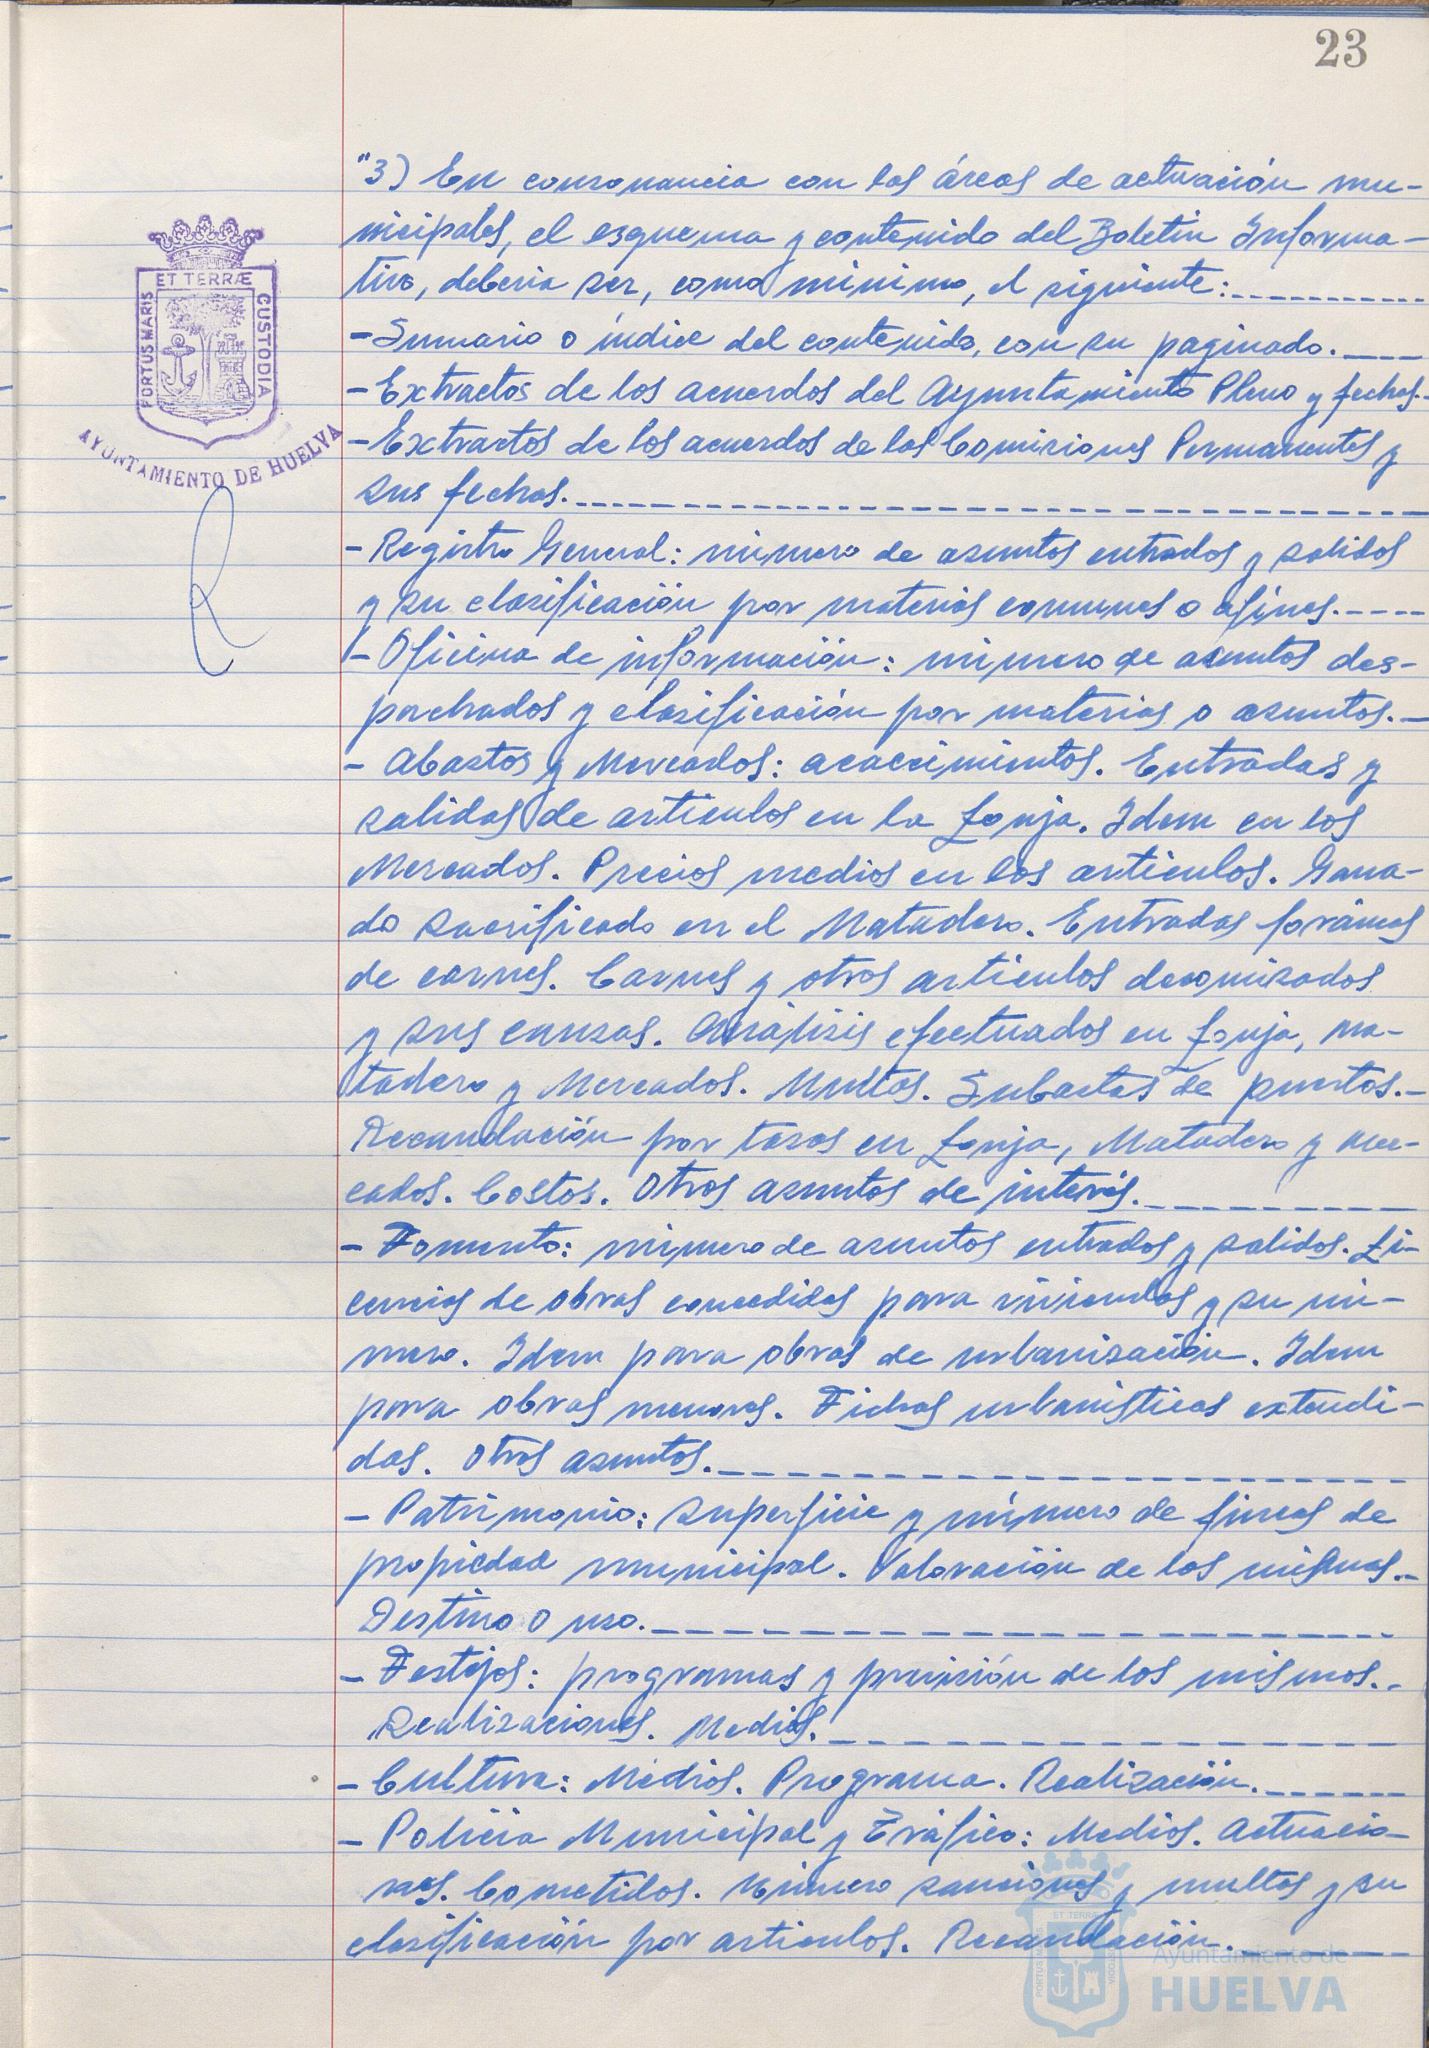 23
"3) En consonancia con las áreas de actuación mu-
nicipales, el esquema y contenido del Boletin Informa-
tivo, deberia ser, como minimo, el siguiente:
- Sumario o índice del contenido, con su paginado.
- Extractos de los acuerdos del Ayuntamiento Pleno y fechas.
- Extractos de los acuerdos de las Comisiones Permanentes y
sus fechas.
- Registro General: número de asuntos entrados y salidos
y su clasificación por materias comunes o afines.
- Oficina de información: número de asuntos des-
pachados y clasificación por materias o asuntos.
- Abastos y Mercados: acaecimientos. Entradas y
salidas de articulos en la Lonja. Idem en los
Mercados. Precios medios en los articulos. Gana-
do sacrificado en el Matadero. Entradas foráneas
de carnes. Carnes y otros articulos decomisados
y sus causas. Análisis efectuados en Lonja, Ma-
tadero y Mercados. Multas. Subastas de puestos.
Recaudación por tasas en Lonja, Matadero y Mer-
cados. Costos. Otros asuntos de interés.
- Fomento: número de asuntos entrados y salidos. Li-
cencias de obras concedidas para viviendas y su nú-
mero. Idem para obras de urbanización. Idem
para obras menores. Fichas urbanísticas extendi-
das. Otros asuntos.
- Patrimonio: superficie y número de fincas de
propiedad municipal. Valoración de las mismas.
Destino o uso.
- Festejos: programas y previsión de los mismos.
Realizaciones. Medios.
- Cultura: Medios. Programa. Realización.
- Policia Municipal y Tráfico: Medios. Actuacio-
nes. Cometidos. Número sanciones y multas y su
clasificación por articulos. Recaudación.
PORTUS MARIS ET TERRÆ CUSTODIA
AYUNTAMIENTO DE HUELVA
PORTUS MARIS ET TERRÆ CUSTODIA
Ayuntamiento de
HUELVA